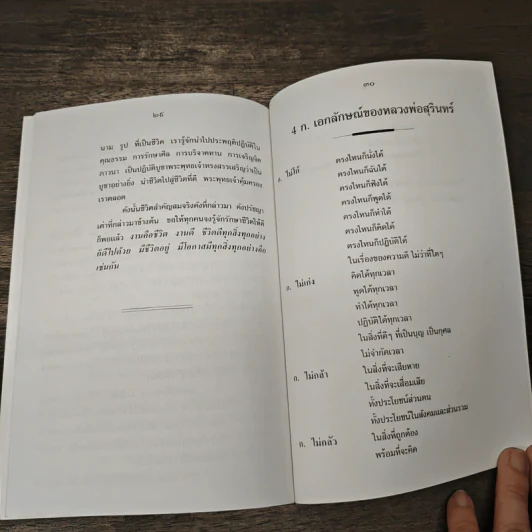 ๒๙
นาม รูป ที่เป็นชีวิต เรารู้จักนำไปประพฤติปฏิบัติใน
คุณธรรม การรักษาศีล การบริจาคทาน การเจริญจิต
ภาวนา เป็นปฏิบัติบูชาพระพุทธเจ้าทรงสรรเสริญว่าเป็น
บูชาอย่างยิ่ง นำชีวิตไปสู่ชีวิตที่ดี พระพุทธเจ้าคุ้มครอง
เราตลอด
ดังนั้นชีวิตสำคัญสมจริงดังที่กล่าวมา ดังปรัชญา
เก่าที่กล่าวมาข้างต้น ขอให้ทุกคนจงรู้จักรักษาชีวิตให้ดี
ก็พอแล้ว งานคือชีวิต งานดี ชีวิตดีทุกสิ่งทุกอย่าง
ก็ดีไปด้วย มีชีวิตอยู่ มีโอกาสมีทุกสิ่งทุกอย่างด้วย
เช่นกัน
๓๐
4 ก. เอกลักษณ์ของหลวงพ่อสุรินทร์
ก. ไม่โก้ ตรงไหนก็นั่งได้
ตรงไหนก็ฉันได้
ตรงไหนก็ฟังได้
ตรงไหนก็พูดได้
ตรงไหนก็ทำได้
ตรงไหนก็คิดได้
ตรงไหนก็ปฏิบัติได้
ในเรื่องของความดี ไม่ว่าที่ใดๆ
ก. ไม่เก่ง คิดได้ทุกเวลา
พูดได้ทุกเวลา
ทำได้ทุกเวลา
ปฏิบัติได้ทุกเวลา
ในสิ่งที่ดีๆ ที่เป็นบุญ เป็นกุศล
ไม่จำกัดเวลา
ก. ไม่กล้า ในสิ่งที่จะเสียหาย
ในสิ่งที่จะเสื่อมเสีย
ทั้งประโยชน์ส่วนตน
ทั้งประโยชน์ในสังคมและส่วนรวม
ก. ไม่กลัว ในสิ่งที่ถูกต้อง
พร้อมที่จะคิด